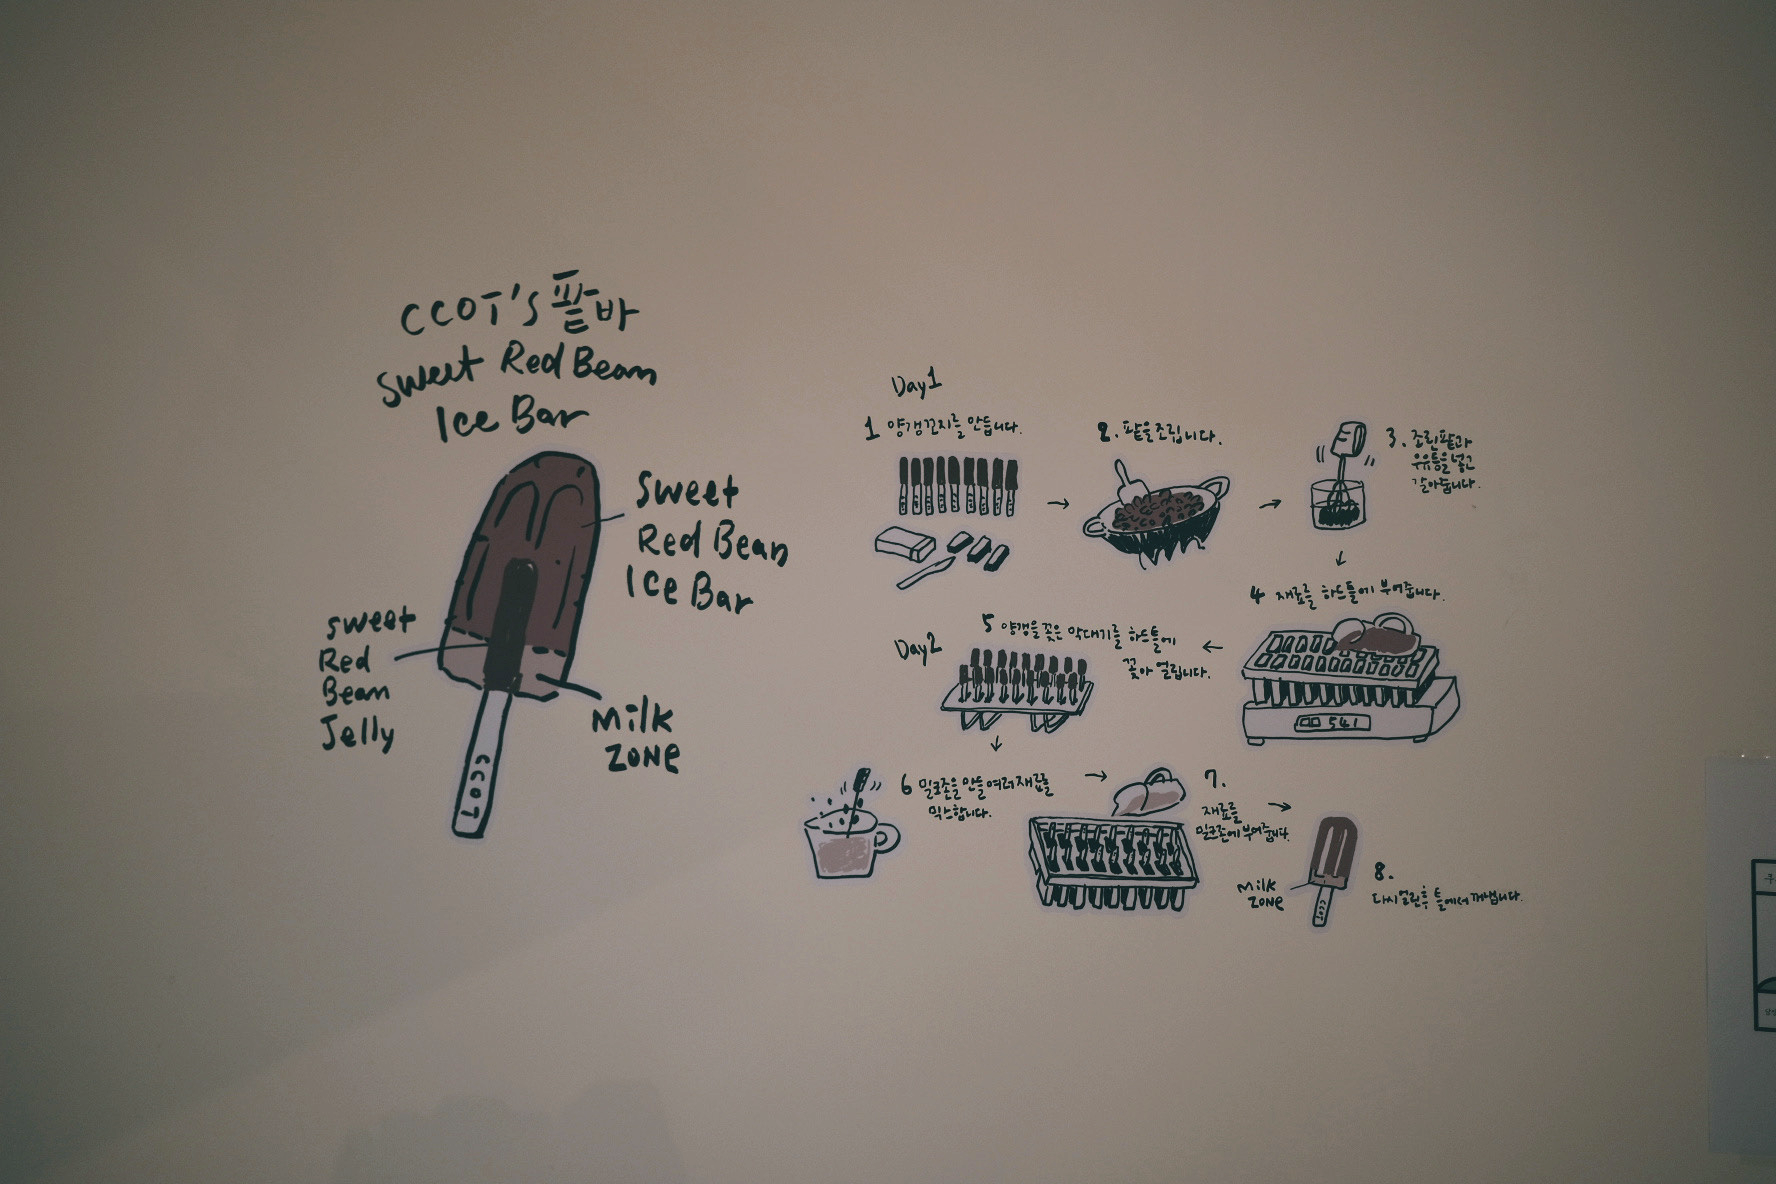 CCOT'S 팥바
Sweet Red Bean
Ice Bar
Sweet
Red Bean
Ice Bar
Sweet
Red
Bean
Jelly
Milk
Zone
CCOT
Day1
1 양갱꼰지를 만듭니다.
2. 팥을 조립니다.
3. 조린팥과
우유등을 넣고
갈아줍니다.
4 재료를 하드틀에 부어줍니다.
541
Day2
5 양갱을 꽂은 막대기를 하드틀에
꽂아 얼립니다.
6 밀크존을 만들 여러재료를
믹스합니다.
7.
재료를
밀크존에 부어줍니다.
Milk
Zone
CCOT
8.
다시 얼린 후 틀에서 꺼냅니다.